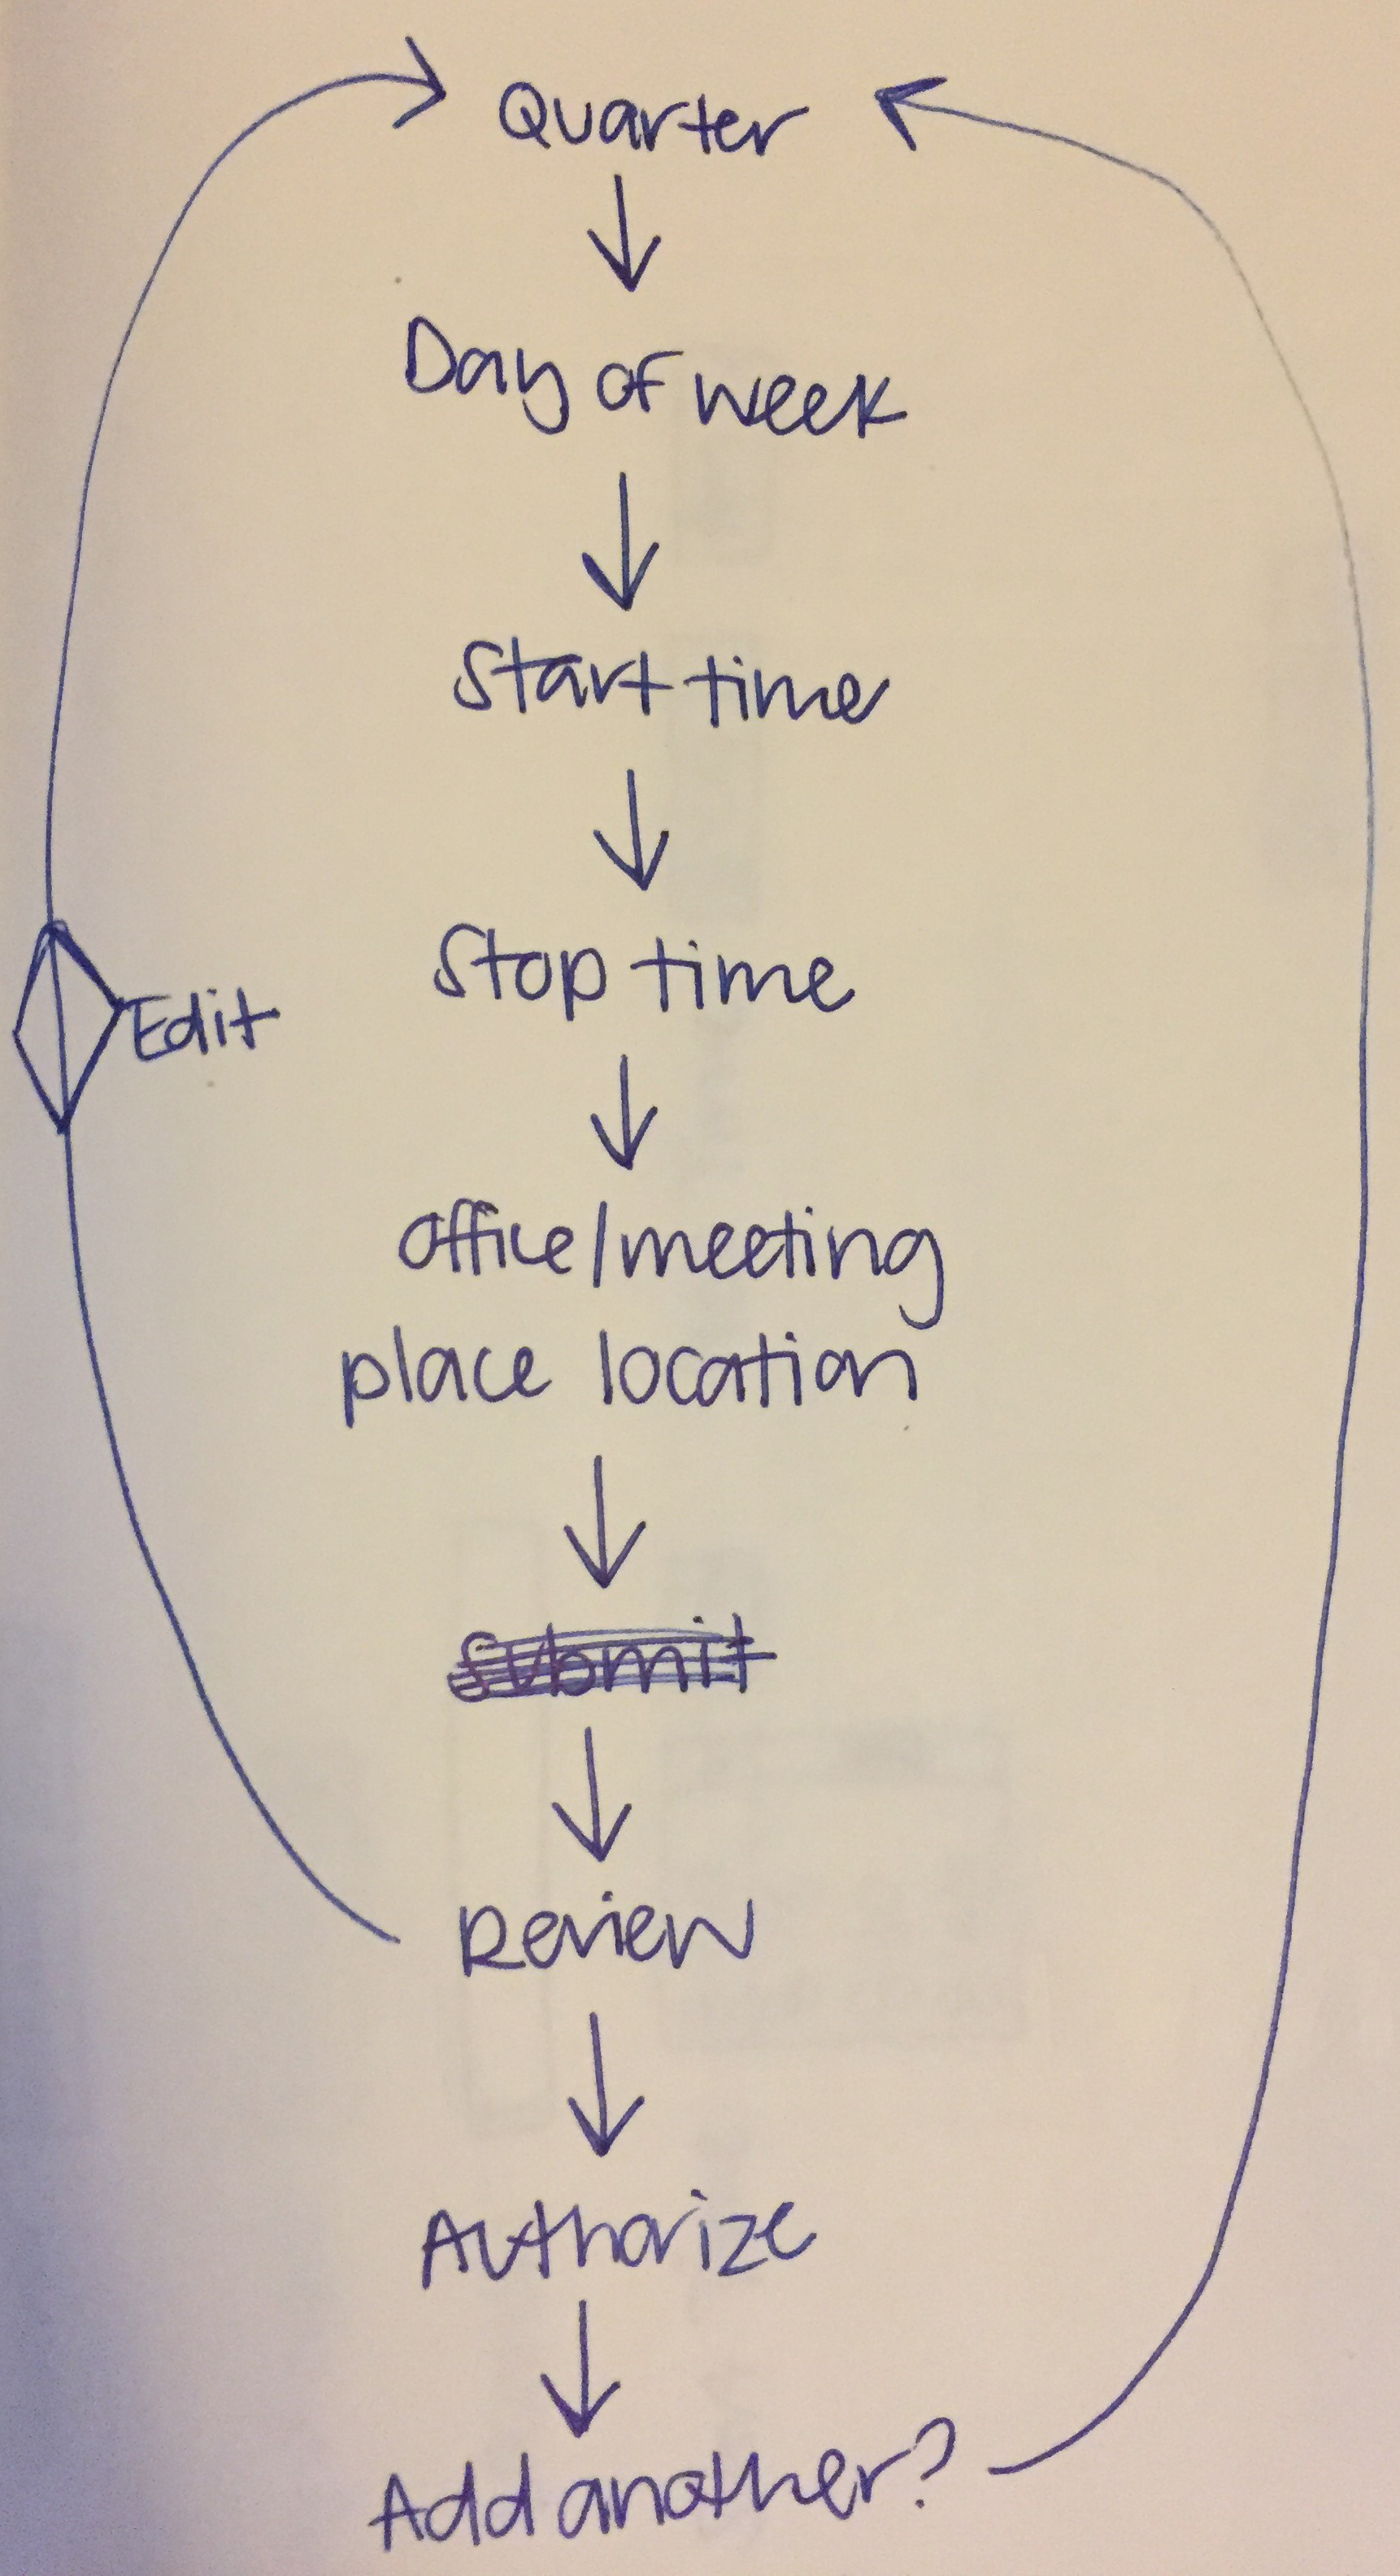 Quarter
Day of week
Start time
Stop time
Edit
Office/meeting
place location
Submit
Review
Authorize
Add another?